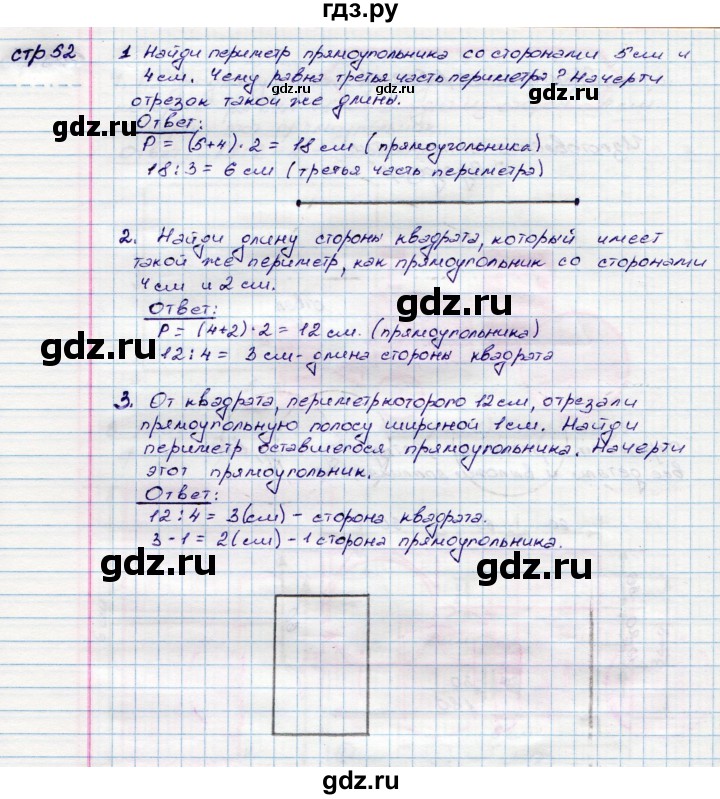 гдз.ру
стр 52
1 Найди периметр прямоугольника со сторонами 5 см и
4 см. Чему равна третья часть периметра? Начерти
отрезок такой же длины.
Ответ:
P = (5+4)·2 = 18 см (прямоугольника)
18:3 = 6 см (третья часть периметра)
2. Найди длину стороны квадрата, который имеет
такой же периметр, как прямоугольник со сторонами
4 см и 2 см.
Ответ:
P = (4+2)·2 = 12 см. (прямоугольника)
12:4 = 3 см - длина стороны квадрата
3. От квадрата, периметр которого 12 см, отрезали
прямоугольную полосу шириной 1 см. Найди
периметр оставшегося прямоугольника. Начерти
этот прямоугольник.
Ответ:
12:4 = 3 (см) - сторона квадрата.
3-1 = 2 (см) - 1 сторона прямоугольника.
gdz.ru
gdz.ru
gdz.ru
gdz.ru
gdz.ru
gdz.ru
gdz.ru
gdz.ru
gdz.ru
gdz.ru
gdz.ru
gdz.ru
gdz.ru
gdz.ru